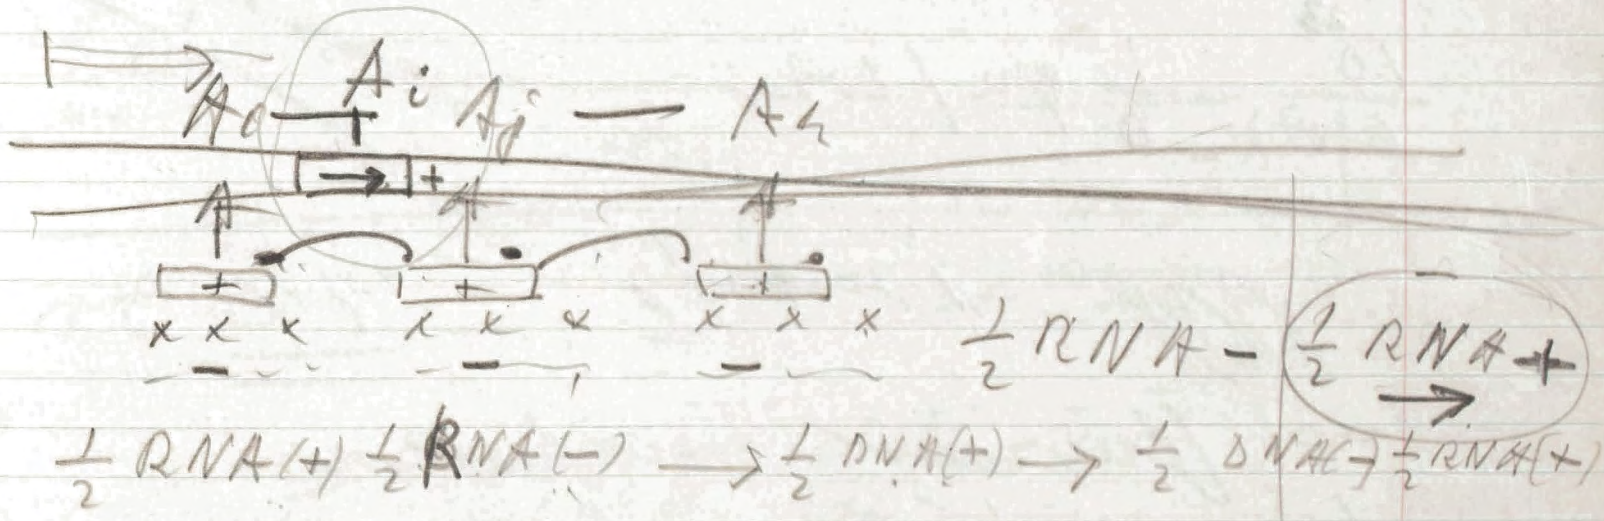 A i
A j — A
+
+ + +
x x x x x x x x x
- - -
1/2 RNA - 1/2 RNA +
1/2 RNA(+) 1/2 RNA(-) → 1/2 DNA(+) → 1/2 DNA(-) 1/2 RNA(+)